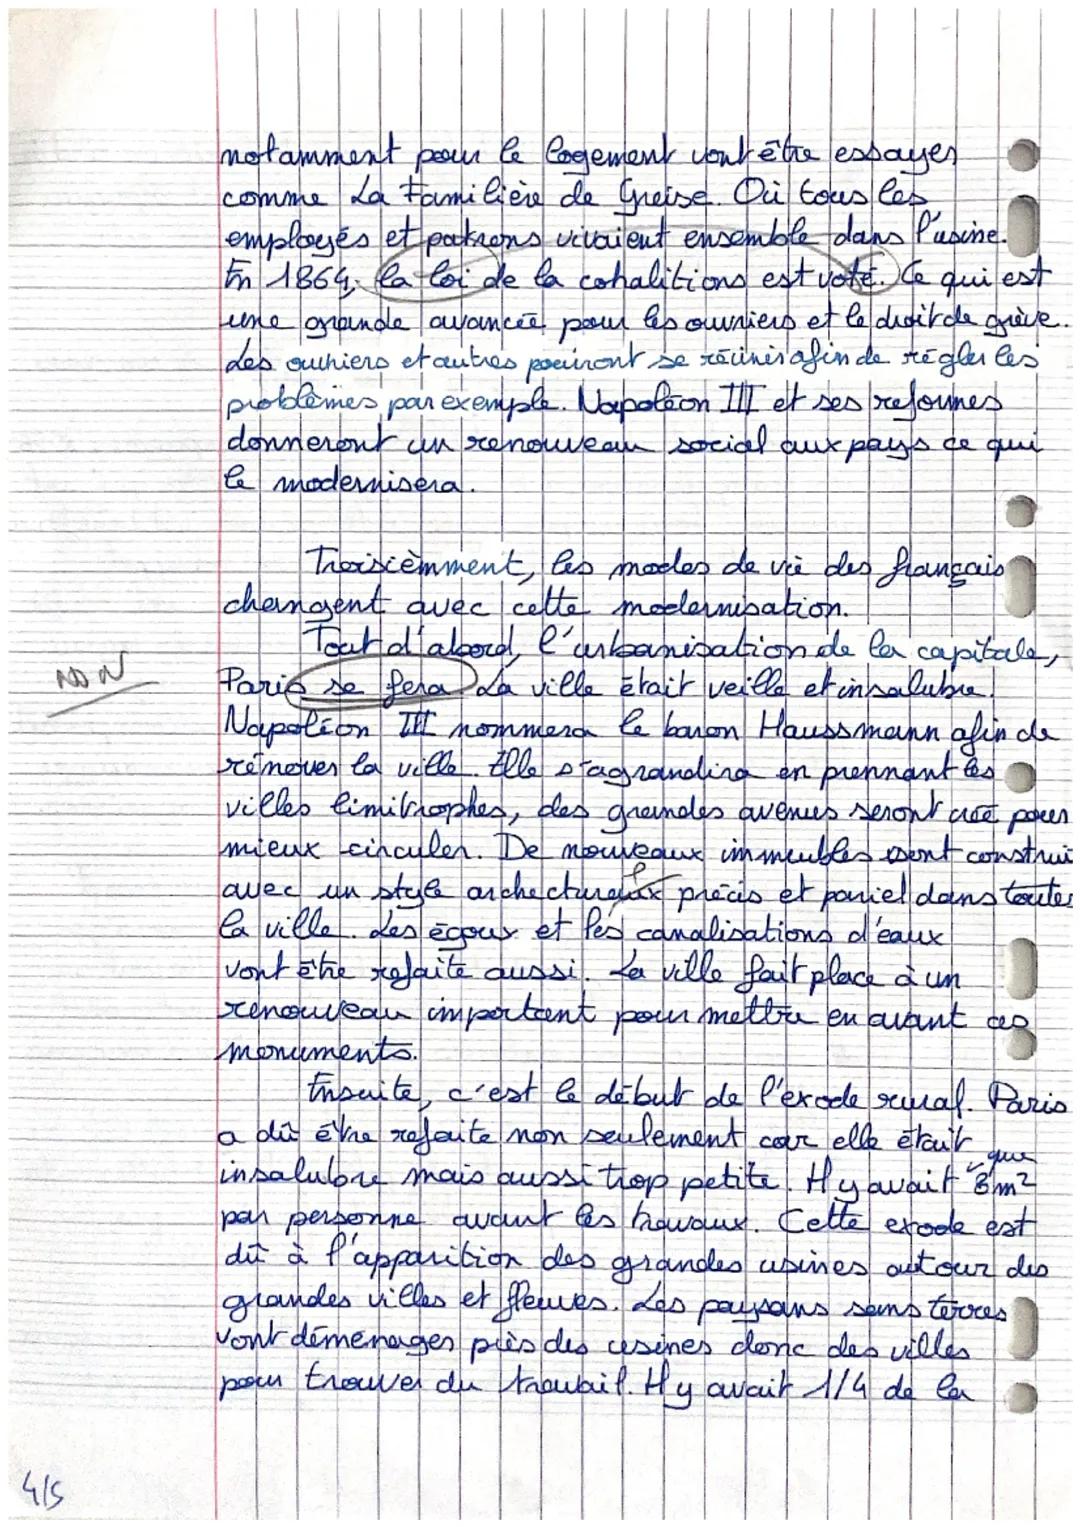 notamment pour le logement vont être essayer
comme La Familière de Greise. Où tous les
employés et patrons vivaient ensemble dans l'usine.
En 1864, la loi de la cohalitions est voté. Ce qui est
une grande avancée pour les ouvriers et le droit de grève.
Les ouvriers et autres pouront se réunir afin de régler les
problèmes par exemple. Napoléon III et ses reformes
donneront un renouveau social aux pays ce qui
le modernisera.
Troisièmment, les modes de vie des français
changent avec cette modernisation.
Tout d'abord, l'urbanisation de la capitale,
NON
Paris se fera. La ville était veille et insalubre.
Napoléon III nommera le baron Haussmann afin de
rénover la ville. Elle s'agrandira en prennant les
villes limitrophes, des grandes avenues seront créé pour
mieux circuler. De nouveaux immeubles sont construi
avec un style archectureaux précis et pariel dans toutes
la ville. Les égoux et les canalisations d'eaux
vont être refaite aussi. La ville fait place à un
renouveau important pour mettre en avant ces
monuments.
Ensuite, c'est le début de l'exode rural. Paris
a dû être refaite non seulement car elle était
insalubre mais aussi trop petite. Il y avait que 3m²
par personne avant les travaux. Cette exode est
dû à l'apparition des grandes usines autour des
grandes villes et fleuves. Les paysans sans terres
vont démenager près des usines donc des villes
pour trouver du travail. Il y avait 1/4 de la
4/5